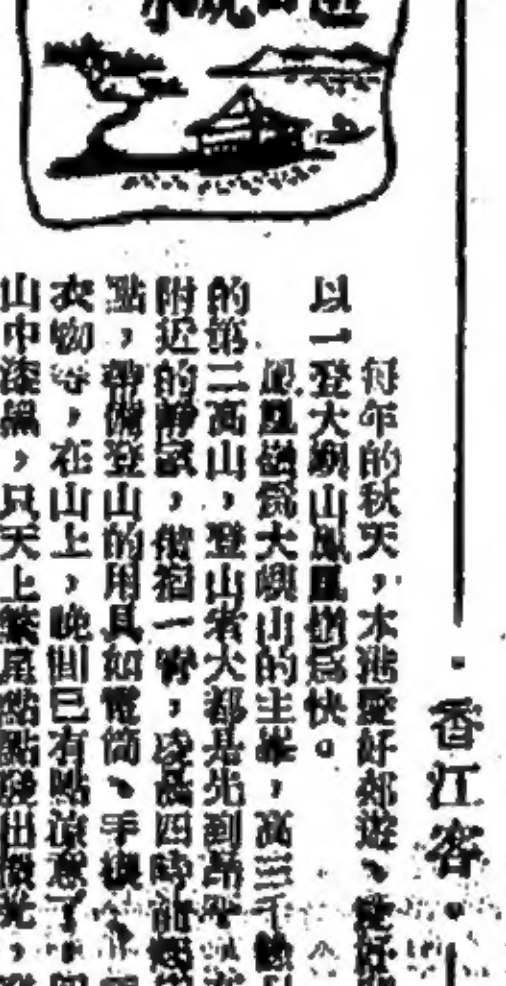 香江客
每年的秋天，本港愛好郊遊、
以一登大嶼山鳳凰嶺為快。
鳳凰嶺為大嶼山的主峯，高三千
的第二高山，登山者大都是先到昂
附近的靜室，借宿一宵，凌晨四時
點，帶備登山的用具如電筒、手
衣物等，在山上，晚間已有點涼意了，
山中漆黑，只天上繁星點點發出微光，